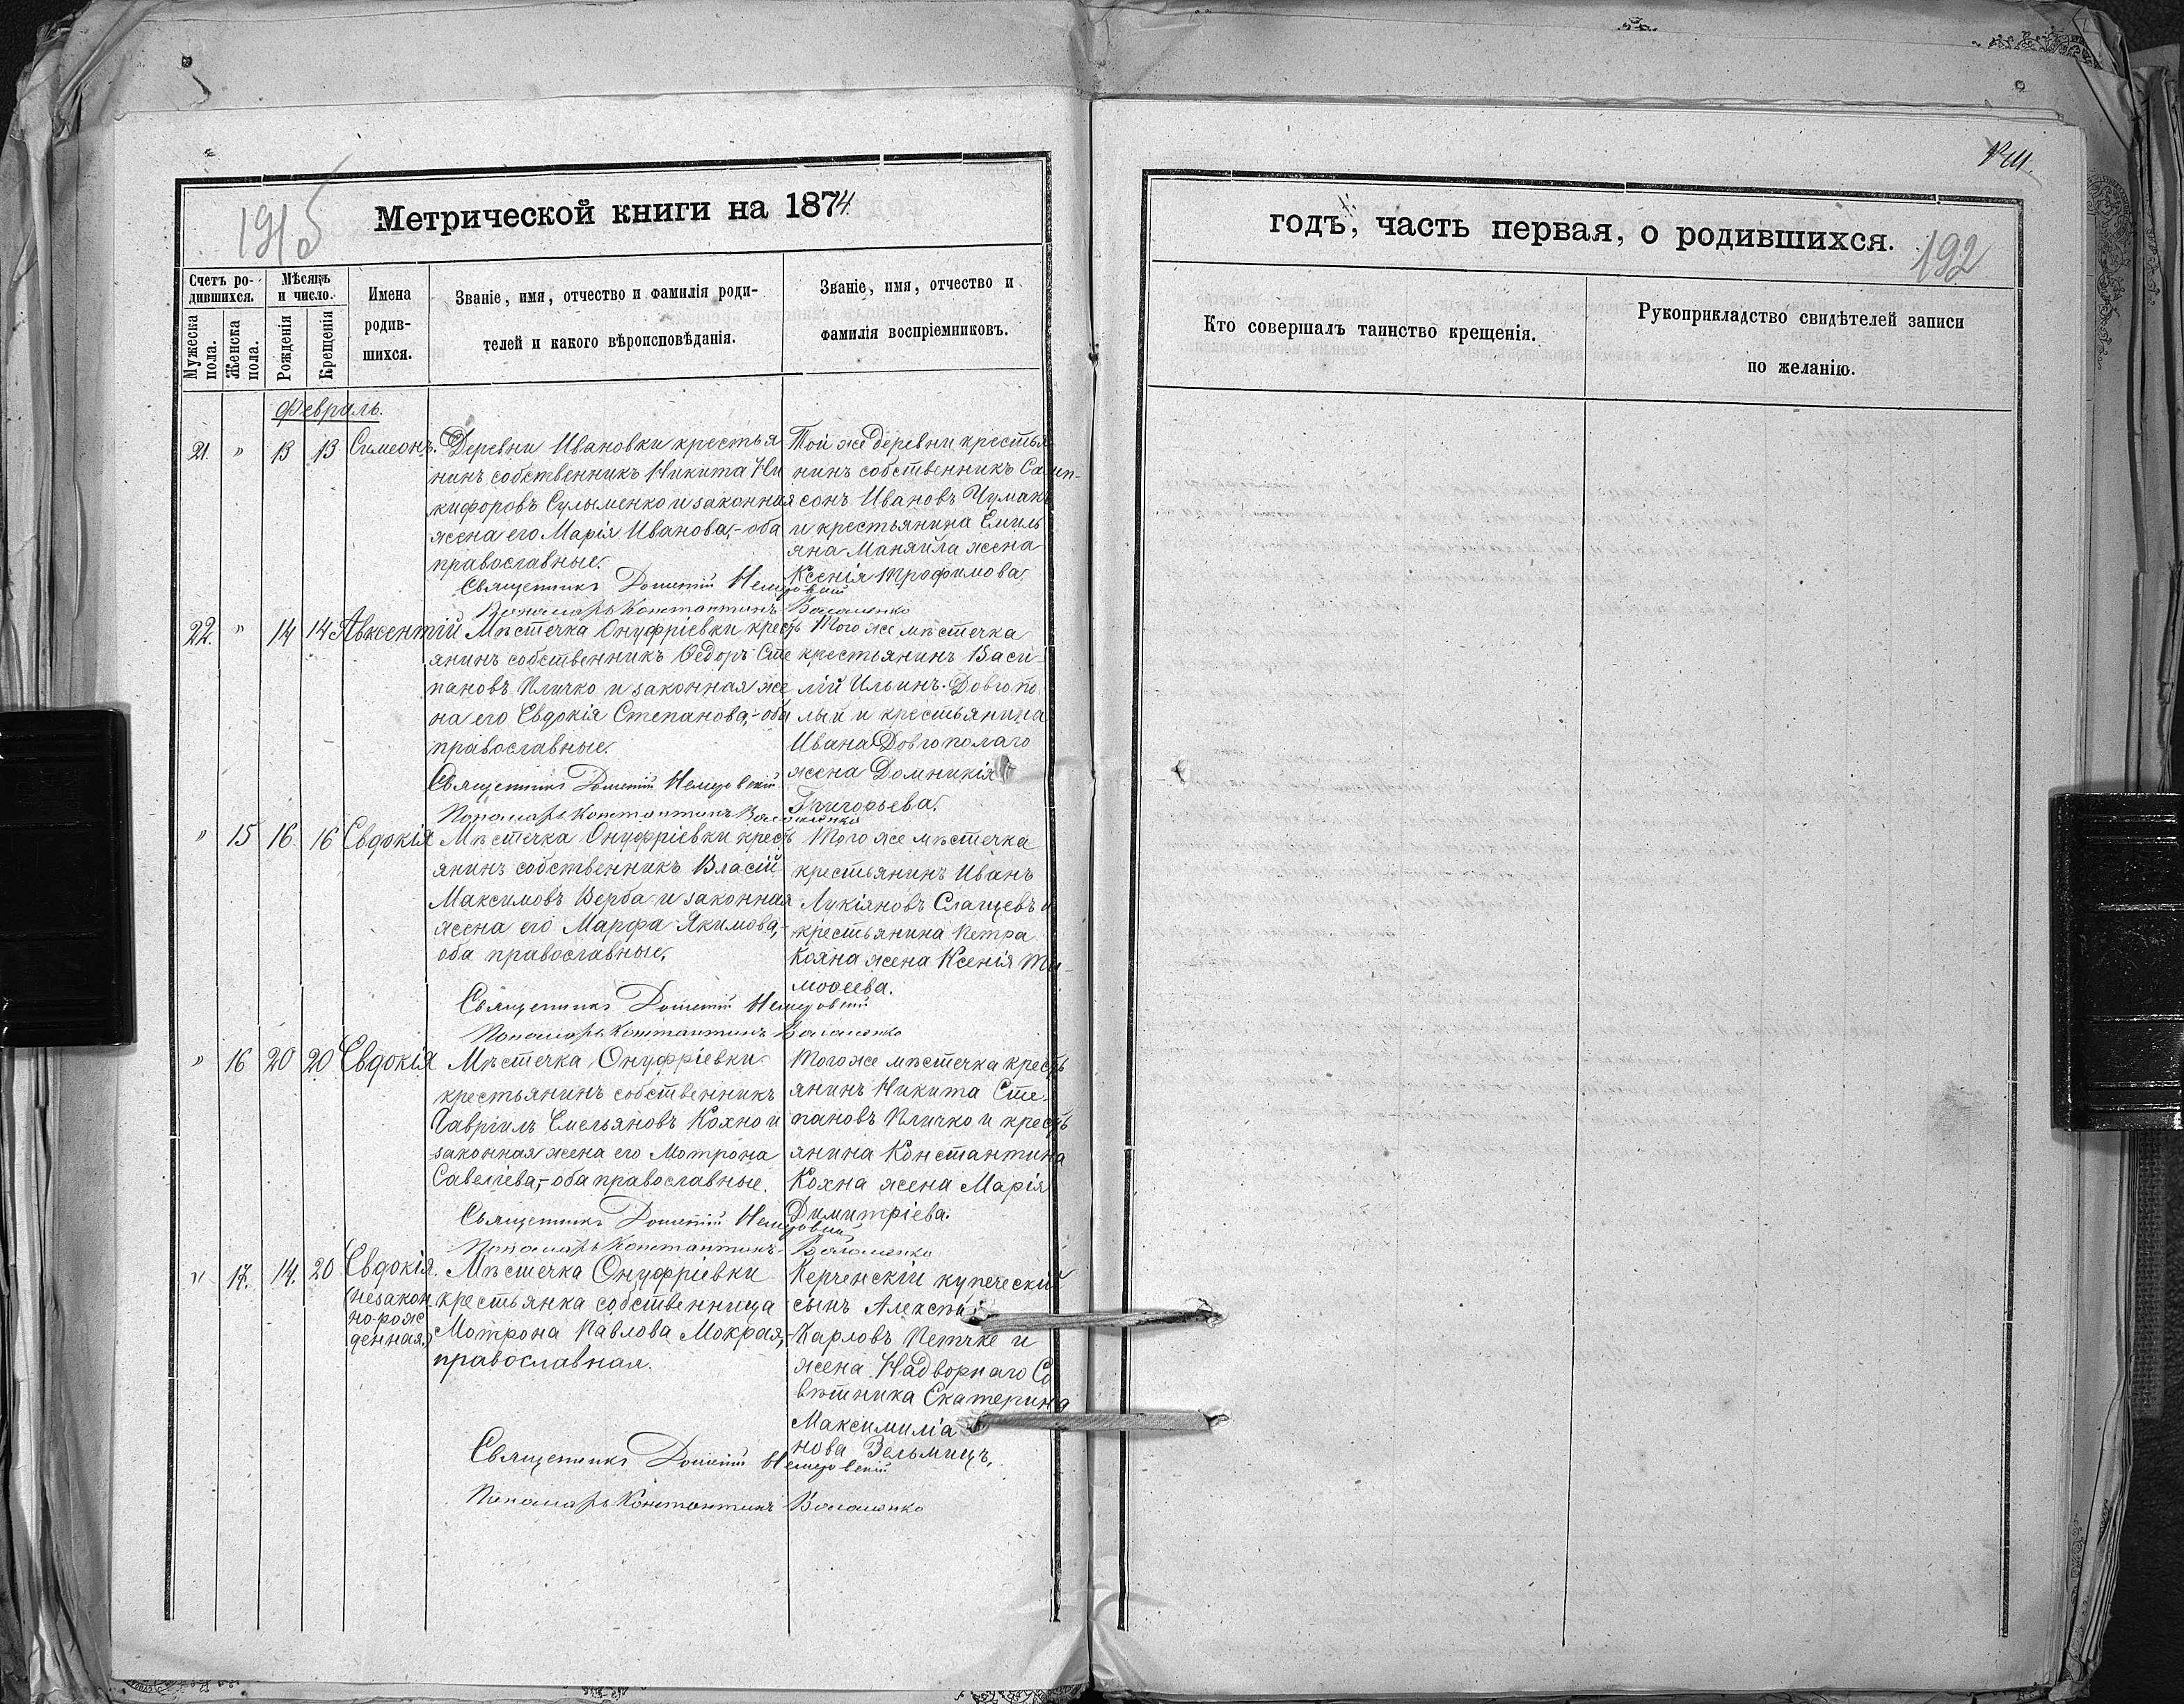 1915
Метрической книги на 1874
годъ, часть первая, о родившихся.
192
Счетъ ро-
дившихся.
Мѣсяцъ
и число.
Мужеска
пола.
Женска
пола.
Рожденія
Крещенія
Имена
родив-
шихся.
Званіе, имя, отчество и фамилія роди-
телей и какого вѣроисповѣданія.
Званіе, имя, отчество и
фамилія воспріемниковъ.
Кто совершалъ таинство крещенія.
Рукоприкладство свидѣтелей записи
по желанію.
Февраль.
21. " 13 13 Симеонъ.
Деревни Ивановки крестья
нинъ собственникъ Никита Ни
кифоровъ Сулыменко и законная
жена его Марія Иванова,- оба
православные.
Той же деревни крестья
нинъ собственникъ Самп-
сонъ Ивановъ Чумакъ
и крестьянина Емиль
яна Маняйла жена
Ксенія Трофимова.
Священникъ Дометій
Пономарь Константинъ
22. " 14 14 Авксентій
Мѣстечка Онуфріевки кресть
янинъ собственникъ Ѳедоръ Сте
пановъ Пличко и законная же
на его Евдокія Степанова,- оба
православные.
Того же мѣстечка
крестьянинъ Васи-
лій Ильинъ Довгопо
лый и крестьянина
Ивана Довгополаго
жена Домникія
Григорьева.
Священникъ Дометій
Пономарь Константинъ
" 15 16. 16 Евдокія
Мѣстечка Онуфріевки кресть
янинъ собственникъ Власій
Максимовъ Верба и законная
жена его Марфа Якимова,-
оба православные.
Того же мѣстечка
крестьянинъ Иванъ
Лукіяновъ Слащевъ и
крестьянина Петра
Кохна жена Ксенія Ти-
моѳеева.
Священникъ Дометій
Пономарь Константинъ
" 16 20 20 Евдокія
Мѣстечка Онуфріевки
крестьянинъ собственникъ
Гавріилъ Емельяновъ Кохно и
законная жена его Мотрона
Савеліева,- оба православные.
Того же мѣстечка кресть
янинъ Никита Сте-
пановъ Пличко и кресть
янина Константина
Кохна жена Марія
Димитріева.
Священникъ Дометій
Пономарь Константинъ
" 17. 14. 20 Евдокія.
(незакон
но-рож
денная)
Мѣстечка Онуфріевки
крестьянка собственница
Мотрона Павлова Мокрая,-
православная.
Керченскій купеческій
сынъ Алексѣй
Карловъ Петчке и
жена Надворнаго Со
вѣтника Екатерина
Максимиліа
нова Зельмицъ.
Священникъ Дометій
Пономарь Константинъ